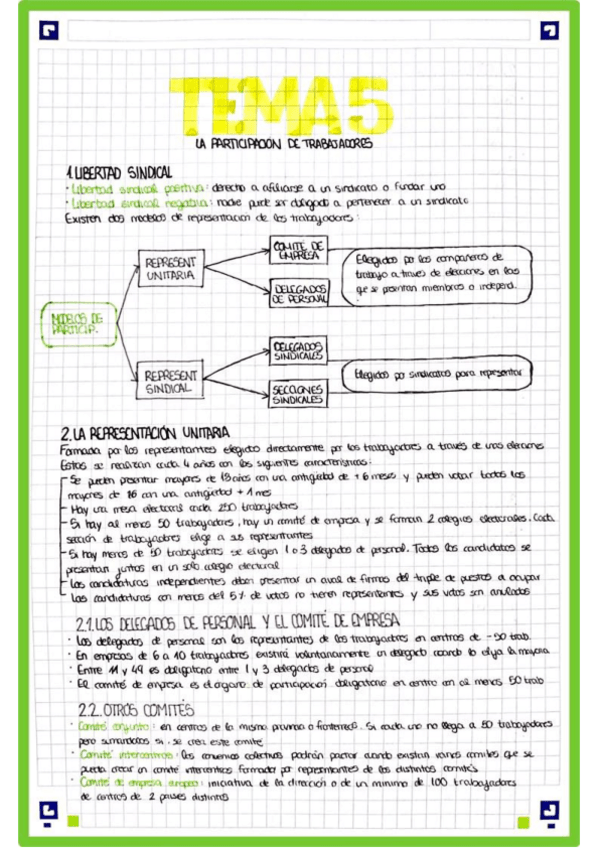 TEMA 5
LA PARTICIPACIÓN DE TRABAJADORES
1. LIBERTAD SINDICAL
· Libertad sindical positiva: derecho a afiliarse a un sindicato o fundar uno
· Libertad sindical negativa: nadie puede ser obligado a pertenecer a un sindicato
Existen dos modelos de representación de los trabajadores:
MODELOS DE
PARTICIP.
REPRESENT
UNITARIA
COMITÉ DE
EMPRESA
DELEGADOS
DE PERSONAL
Elegidos por los compañeros de
trabajo a través de elecciones en las
que se presentan miembros o independ.
REPRESENT
SINDICAL
DELEGADOS
SINDICALES
SECCIONES
SINDICALES
Elegidos por sindicatos para representar
2. LA REPRESENTACIÓN UNITARIA
Formada por los representantes elegidos directamente por los trabajadores a través de unas elecciones
Estas se realizan cada 4 años con las siguientes características:
- Se pueden presentar mayores de 18 años con una antigüedad de +6 meses y pueden votar todos los
mayores de 16 con una antigüedad +1 mes
- Hay una mesa electoral cada 250 trabajadores
- Si hay al menos 50 trabajadores, hay un comité de empresa y se forman 2 colegios electorales. Cada
sección de trabajadores elige a sus representantes
- Si hay menos de 50 trabajadores se eligen 1 o 3 delegados de personal. Todos los candidatos se
presentan juntos en un solo colegio electoral
- Las candidaturas independientes deben presentar un aval de firmas del triple de puestos a ocupar
Las candidaturas con menos del 5% de votos no tienen representantes y sus votos son anulados
2.1. LOS DELEGADOS DE PERSONAL Y EL COMITÉ DE EMPRESA
· Los delegados de personal son los representantes de los trabajadores en centros de -50 trab.
· En empresas de 6 a 10 trabajadores existirá voluntariamente un delegado cuando lo elija la mayoría
· Entre 11 y 49 es obligatorio entre 1 y 3 delegados de personal
· El comité de empresa es el órgano de participación obligatorio en centro con al menos 50 trab
2.2. OTROS COMITÉS
· Comité conjunto: en centros de la misma provincia o fronteriza. Si cada uno no llega a 50 trabajadores
pero sumandolos si, se crea este comité
· Comité intercentros: los convenios colectivos podrán pactar cuando existan varios comités que se
pueda crear un comité intercentros formado por representantes de los distintos comités
· Comité de empresa europeo: iniciativa de la dirección o de un mínimo de 100 trabajadores
de centros de 2 países distintos